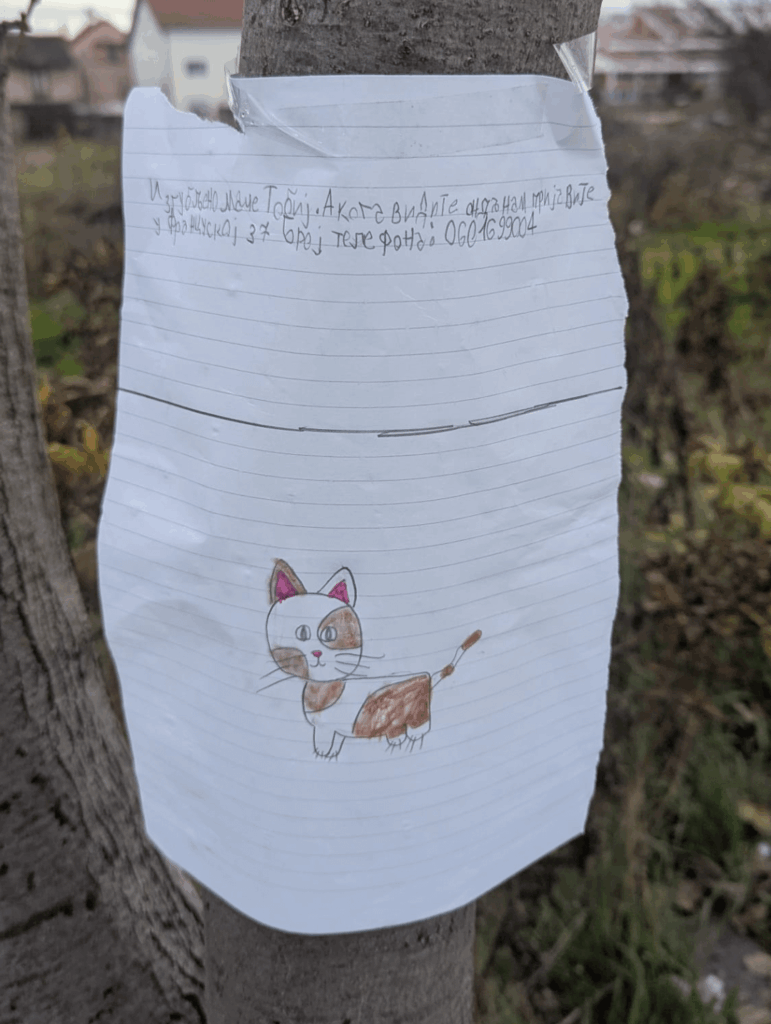 Изгубљено маче Тобиј. Ако га видите онда нам пријавите
у Француској 37 број телефона: 0601699004